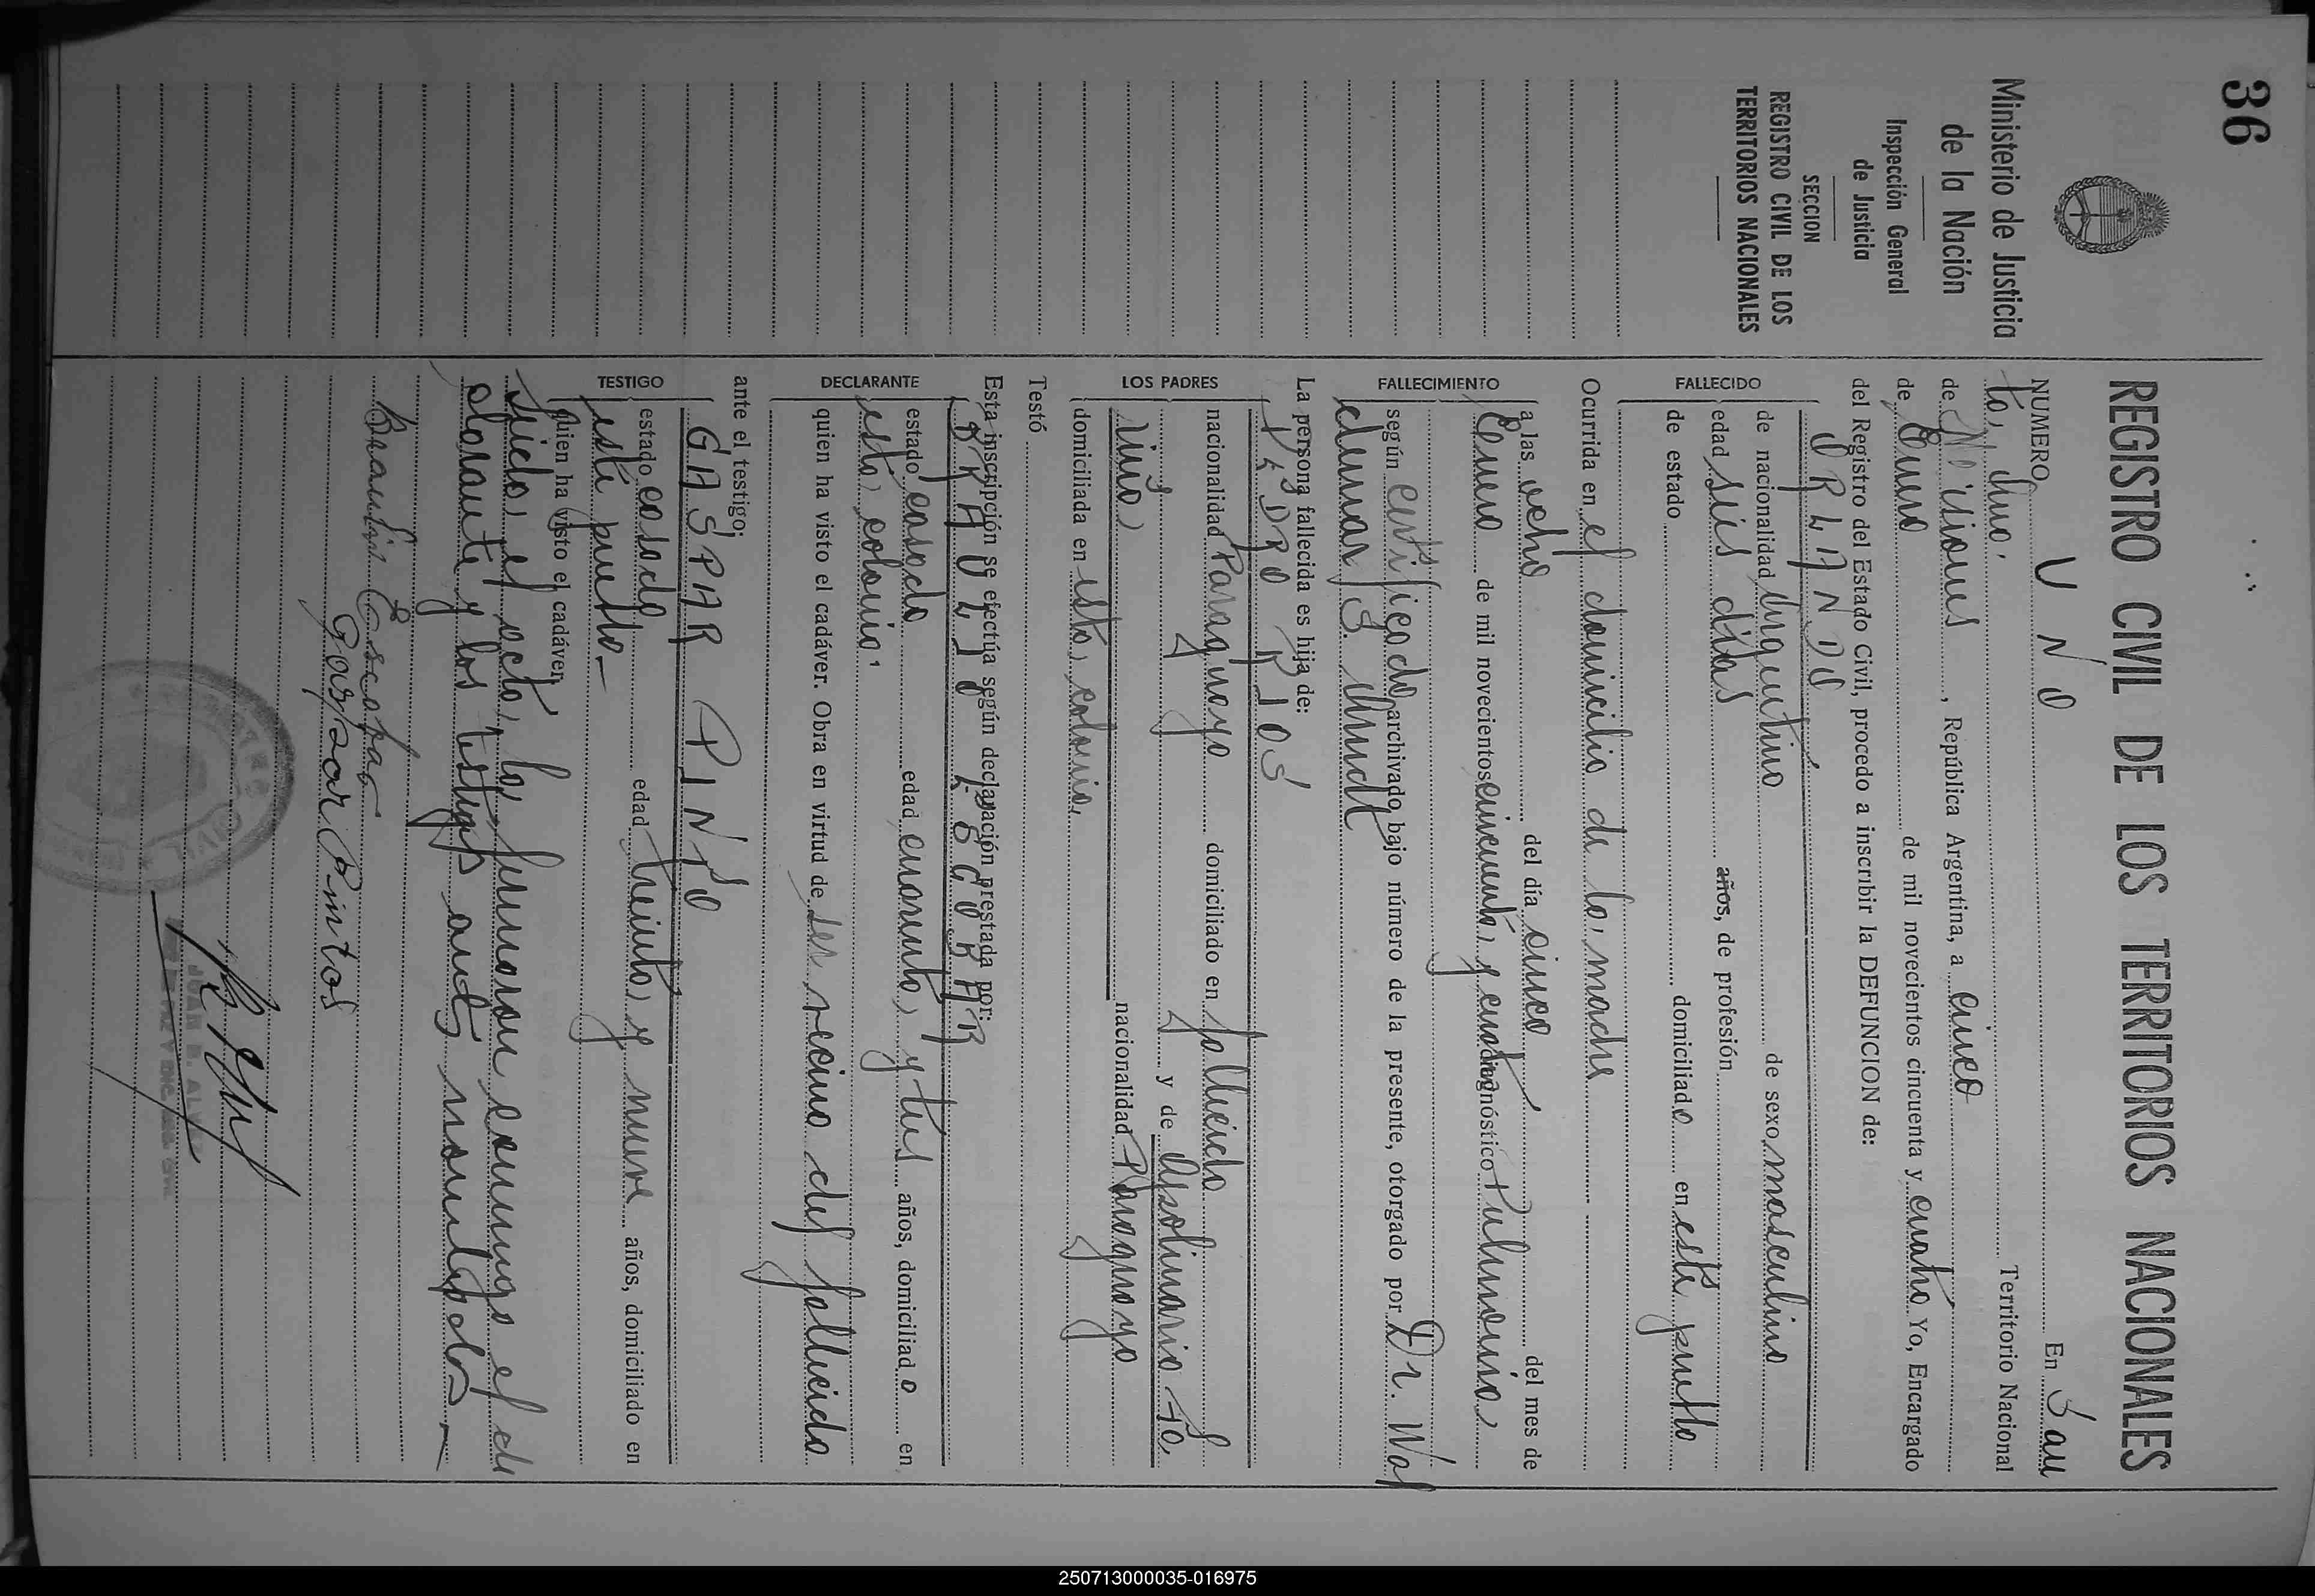 36
Ministerio de Justicia
de la Nación
Inspección General
de Justicia
SECCION
REGISTRO CIVIL DE LOS
TERRITORIOS NACIONALES
REGISTRO CIVIL DE LOS TERRITORIOS NACIONALES
NUMERO UNO En San
ta Ana, Territorio Nacional
de Misiones, República Argentina, a cinco
de Enero de mil novecientos cincuenta y cuatro Yo, Encargado
del Registro del Estado Civil, procedo a inscribir la DEFUNCION de:
FALLECIDO
ORLANDO
de nacionalidad argentino de sexo masculino
edad seis días años, de profesión
de estado domiciliado en este pueblo
Ocurrida en el domicilio de la madre
FALLECIMIENTO
a las ocho del día cinco del mes de
Enero de mil novecientos cincuenta y cuatro diagnóstico Pulmonia
según certificado archivado bajo número de la presente, otorgado por Dr. Wol
demar S.
La persona fallecida es hija de:
LOS PADRES
PEDRO RIOS
nacionalidad Paraguayo domiciliado en fallecido
y de
nacionalidad Paraguayo
domiciliada en esta colonia
Testó
Esta inscripción se efectúa según declaración prestada por:
DECLARANTE
BRAULIO ESCOBAR
estado casado edad cuarenta y tres años, domiciliado en
esta colonia
quien ha visto el cadáver. Obra en virtud de ser vecino del fallecido
ante el testigo:
TESTIGO
GASPAR PINTO
estado casado edad treinta y nueve años, domiciliado en
este pueblo
quien ha visto el cadáver,
Leido el acta, la firmaron conmigo el de
clarante y los testigos antes nombrados
Braulio Escobar
Gaspar Pintos
REGISTRO CIVIL
250713000035-016975